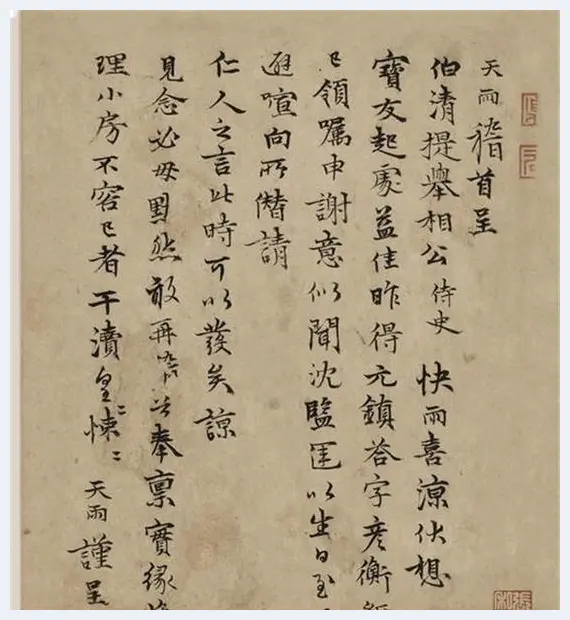 天雨稽首呈
伯清提舉相公侍史 快雨喜涼伏想
寶友起處益佳昨得元鎮荅字彥衡
已領囑申謝意似聞沈監匡以生日至
避喧向所僭請
仁人之言此時可以發矣諒
見念必毋因然敢再奉稟實緣
理小房不容已者干瀆皇〻悚〻 天雨謹呈